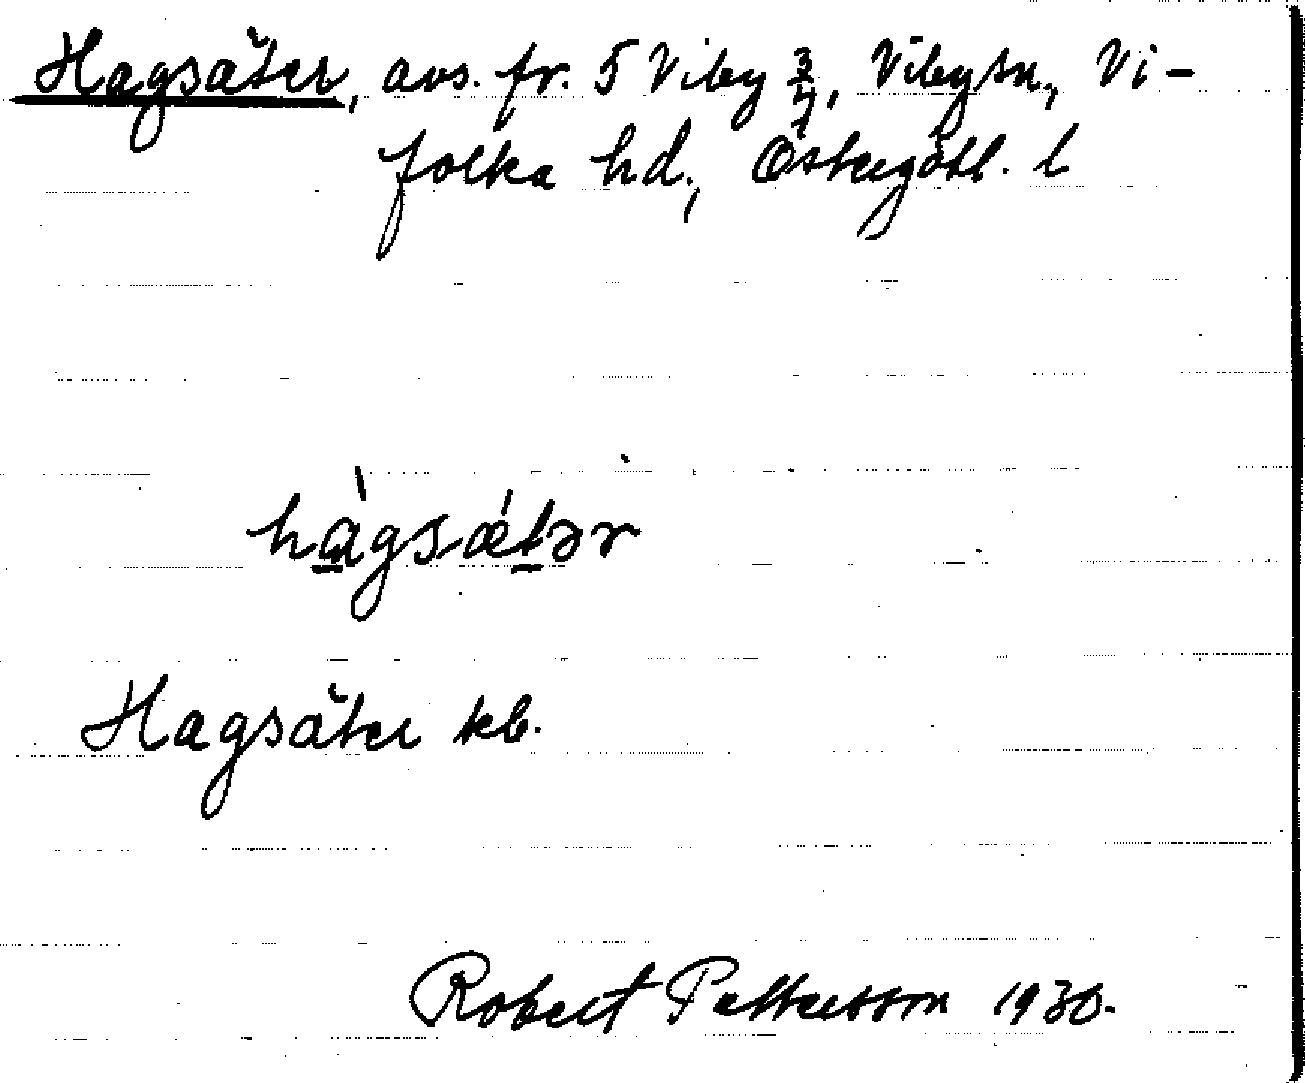 Hagsäter, avs. fr. 5 Viby 3/4, Viby sn, Vi-
folka hd., Östergötl. l
hàgsǽtər
Hagsäter kb.
Robert Pettersson 1930.